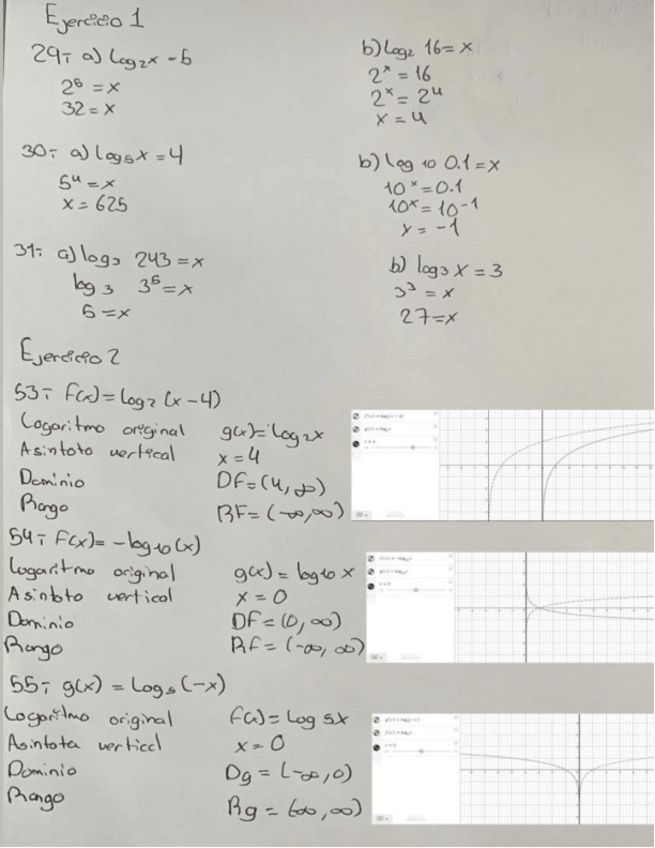 Ejercicio 1
29.- a) log₂x = 5
2⁵ = x
32 = x
b) log₂ 16 = x
2ˣ = 16
2ˣ = 2⁴
x = 4
30.- a) log₅x = 4
5⁴ = x
x = 625
b) log 10 0.1 = x
10ˣ = 0.1
10ˣ = 10⁻¹
x = -1
31.- a) log₃ 243 = x
log 3 3⁵ = x
5 = x
b) log₃ x = 3
3³ = x
27 = x
Ejercicio 2
53.- f(x) = log₂ (x-4)
Logaritmo original g(x) = log₂x
Asintoto vertical x = 4
Dominio DF = (4, ∞)
Rango RF = (-∞, ∞)
54.- F(x) = -log₁₀(x)
Logaritmo original g(x) = log₁₀ x
Asintoto vertical x = 0
Dominio DF = (0, ∞)
Rango RF = (-∞, ∞)
55.- g(x) = Log₅ (-x)
Logaritmo original F(x) = Log 5x
Asintota vertical x = 0
Dominio Dg = (-∞, 0)
Rango Rg = (-∞, ∞)